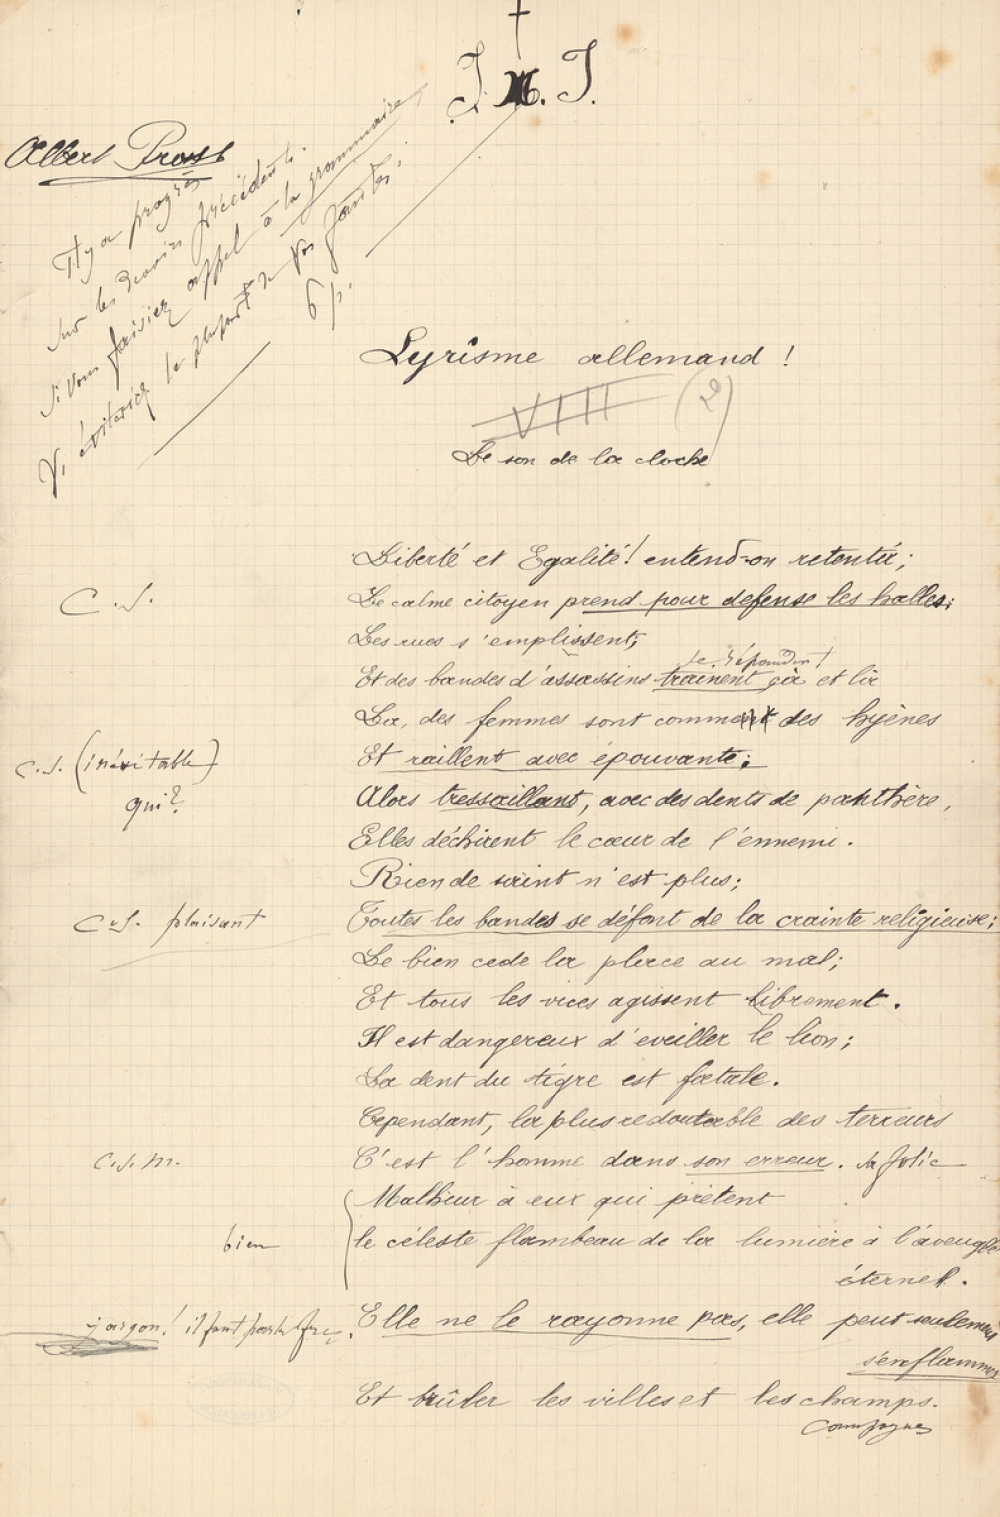 J. M. J.
Albert Prost
Il y a progrès
sur les devoirs précédents.
Si vous faisiez appel à la grammaire
V. éviteriez la plupart de vos fautes.
6 p.
Lyrisme allemand !
VIII (2)
Le son de la cloche
Liberté et Egalité! entend-on retentir;
C.S.
Le calme citoyen prend pour defense les halles;
Les rues s'emplissent,
se répandent
Et des bandes d'assassins trainent çà et là
La, des femmes sont comme des hyènes
C.S. (inévitable)
Et raillent avec épouvante;
qui?
Alors tressaillant, avec des dents de panthère,
Elles déchirent le cœur de l'ennemi.
Rien de saint n'est plus;
C.S. plaisant
Toutes les bandes se défont de la crainte religieuse;
Le bien cede la place au mal;
Et tous les vices agissent librement.
Il est dangereux d'eveiller le lion;
La dent du tigre est fatale.
Cependant, la plus redoutable des terreurs
C.S.M.
C'est l'homme dans son erreur. sa folie
Malheur à eux qui prêtent
bien
le céleste flambeau de la lumière à l'aveugle
éternel.
jargon! il faut parler
Elle ne le rayonne pas, elle peut seulement
s'enflammer
Et brûler les villes et les champs.
campagnes